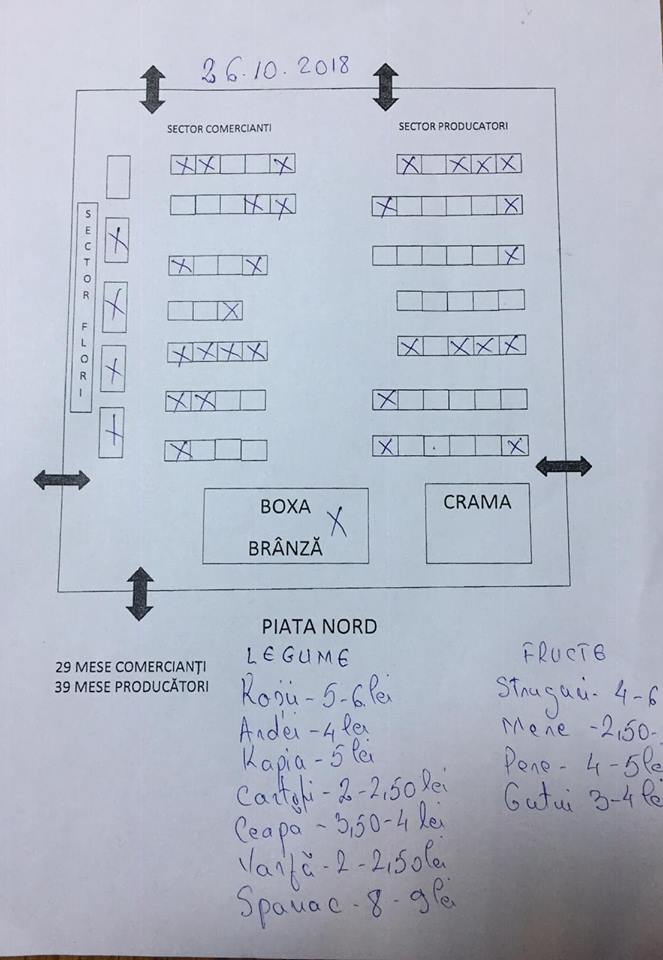 26.10.2018
SECTOR COMERCIANTI
SECTOR PRODUCATORI
SECTOR FLORI
BOXA
BRÂNZĂ
CRAMA
PIATA NORD
29 MESE COMERCIANȚI
39 MESE PRODUCĂTORI
LEGUME
Roșii - 5-6 lei
Ardei - 4 lei
Kapia - 5 lei
Cartofi - 2-2,50 lei
Ceapă - 3,50-4 lei
Varză - 2-2,50 lei
Spanac - 8-9 lei
FRUCTE
Struguri - 4-6
Mere - 2,50-
Pere - 4-5 le
Gutui 3-4 le